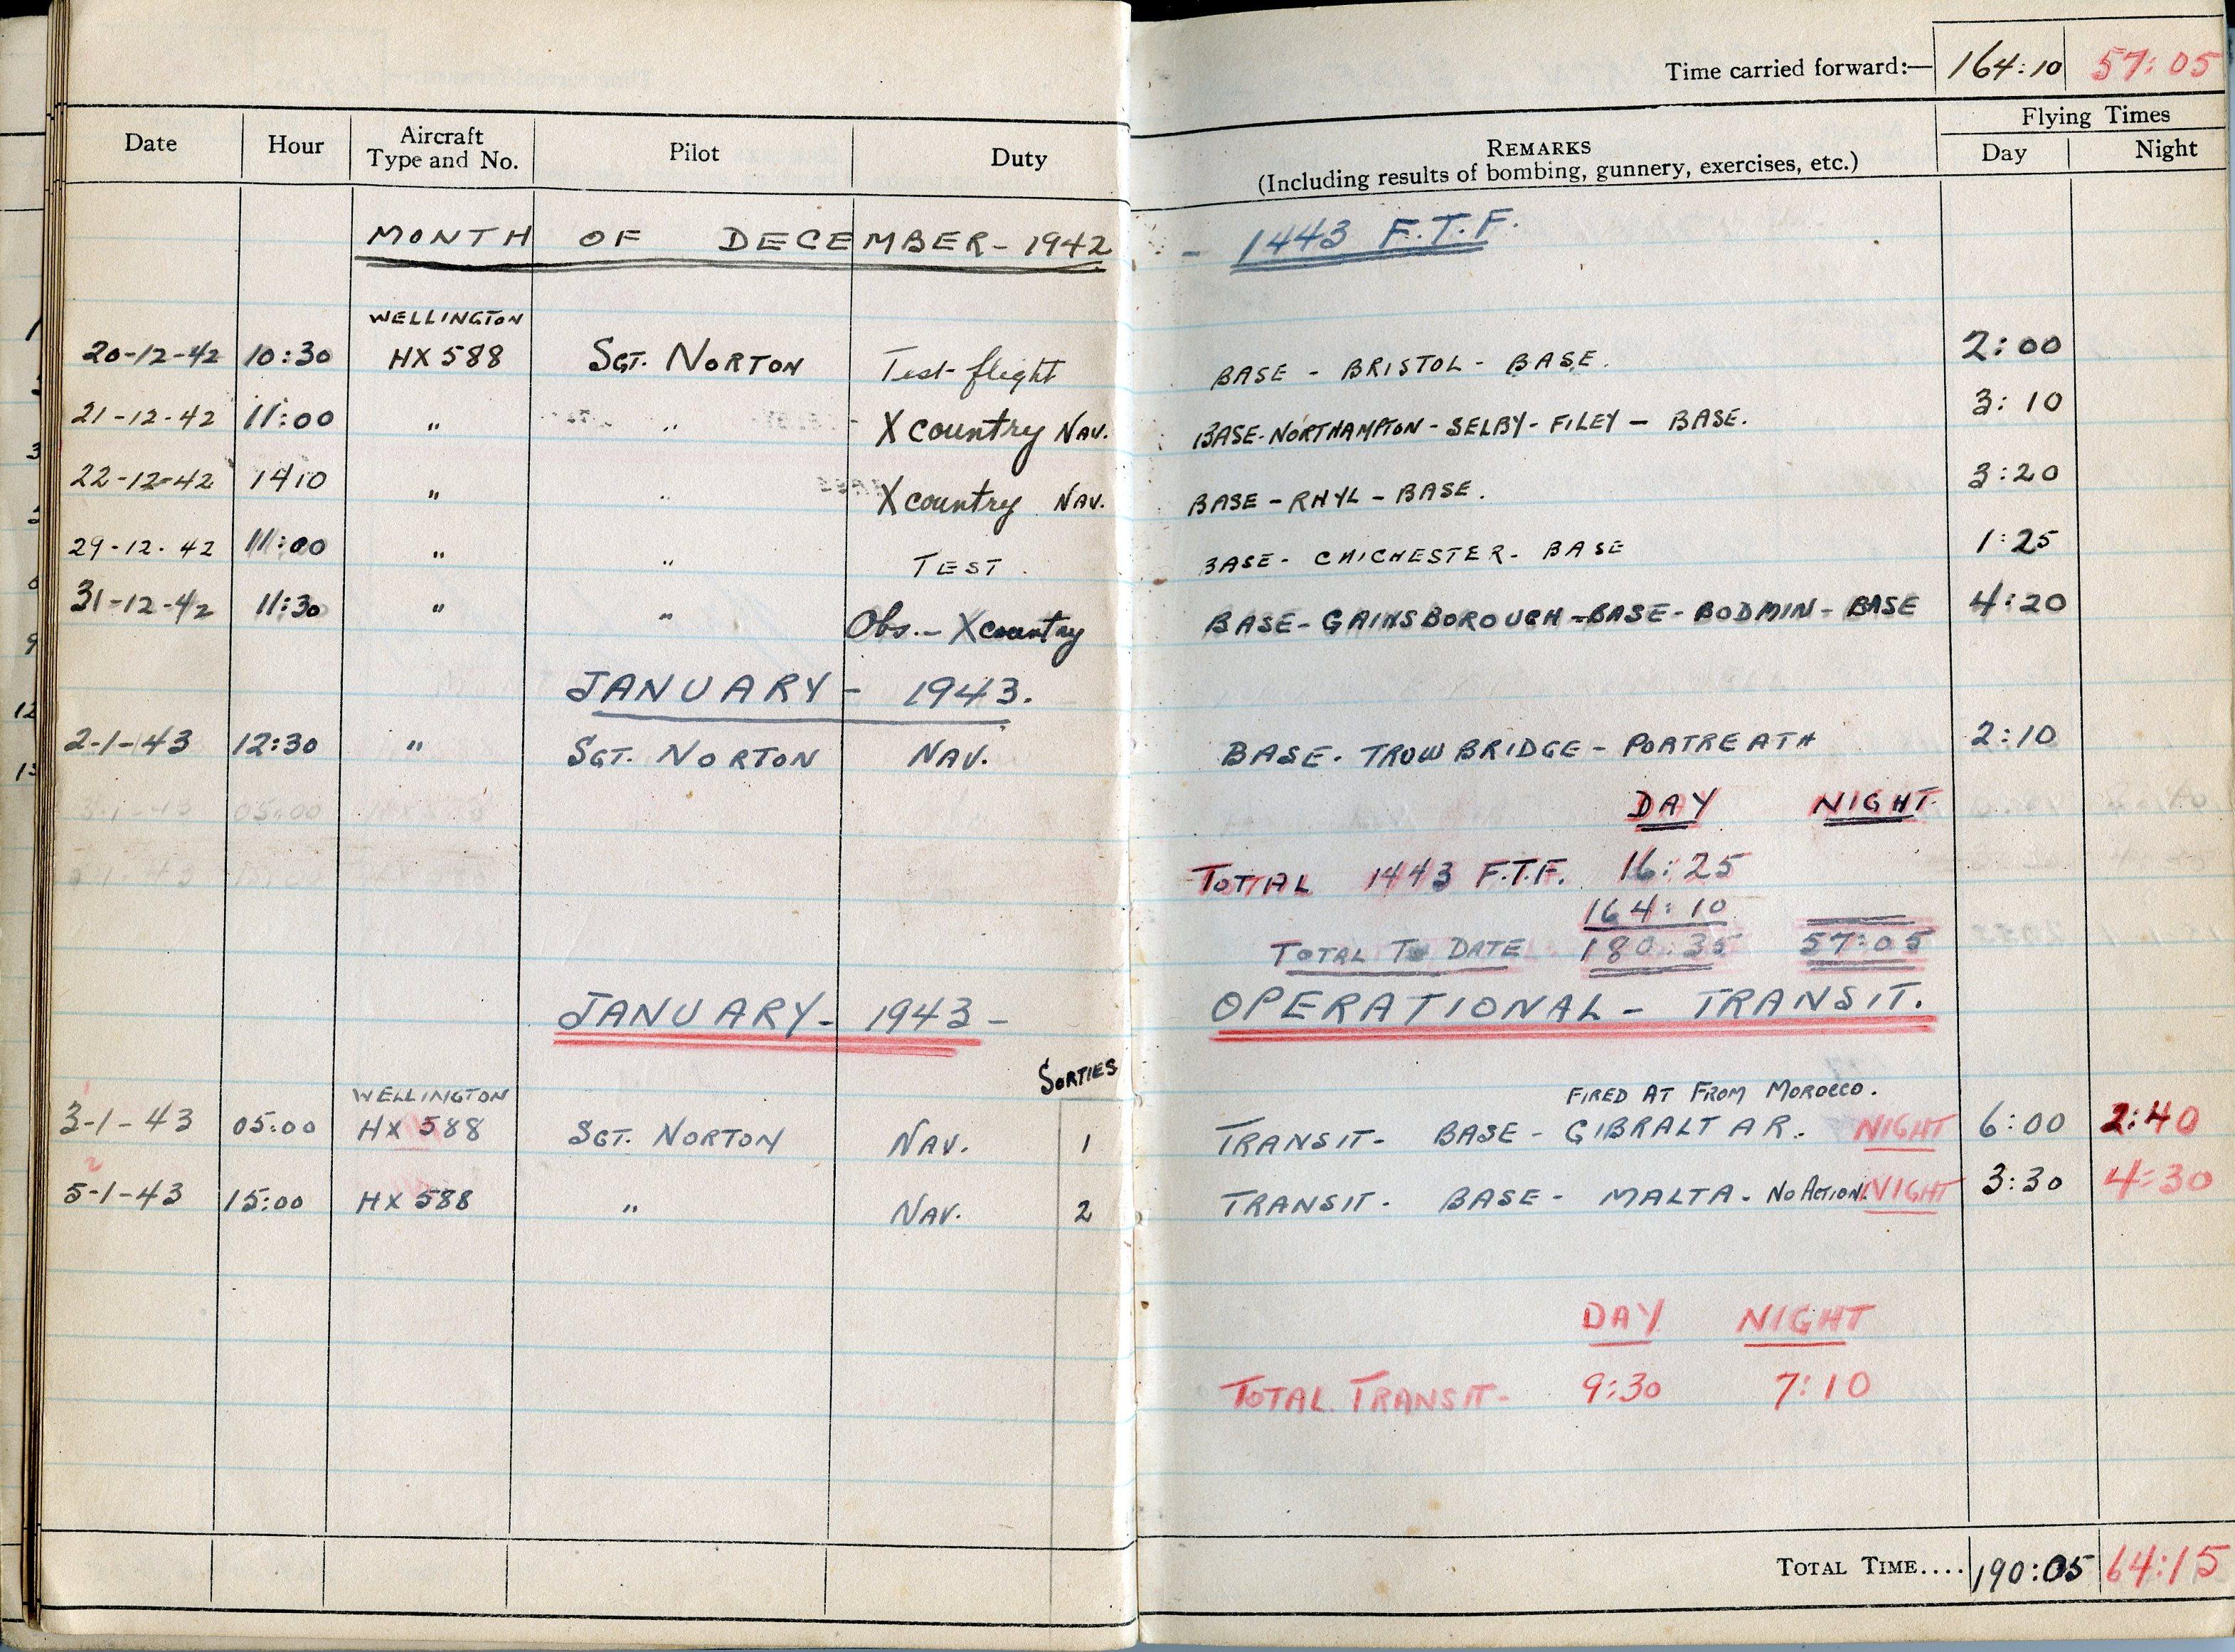 Time carried forward:— 164:10 57:05
Date Hour Aircraft Type and No. Pilot Duty REMARKS (Including results of bombing, gunnery, exercises, etc.) Flying Times Day Night
MONTH OF DECEMBER - 1942 - 1443 F.T.F.
WELLINGTON
20-12-42 10:30 HX 588 SGT. NORTON Test flight BASE - BRISTOL - BASE. 2:00
21-12-42 11:00 " " X country NAV. BASE-NORTHAMPTON - SELBY - FILEY - BASE. 3:10
22-12-42 1410 " " X country NAV. BASE - RHYL - BASE. 3:20
29-12-42 11:00 " " TEST BASE - CHICHESTER - BASE 1:25
31-12-42 11:30 " " Obs. - X country BASE - GAINSBOROUGH - BASE - BODMIN - BASE 4:20
JANUARY - 1943.
2-1-43 12:30 " SGT. NORTON NAV. BASE - TROWBRIDGE - PORTREATH 2:10
DAY NIGHT
3-1-43 05:00
TOTAL 1443 F.T.F. 16:25
164:10
TOTAL TO DATE 180:35 57:05
JANUARY - 1943 - OPERATIONAL - TRANSIT.
SORTIES
1 WELLINGTON FIRED AT FROM MOROCCO.
3-1-43 05:00 HX 588 SGT. NORTON NAV. 1 TRANSIT - BASE - GIBRALTAR. NIGHT 6:00 2:40
2
5-1-43 15:00 HX 588 " NAV. 2 TRANSIT. BASE - MALTA - NO ACTION. NIGHT 3:30 4:30
DAY NIGHT
TOTAL TRANSIT - 9:30 7:10
TOTAL TIME.... 190:05 64:15